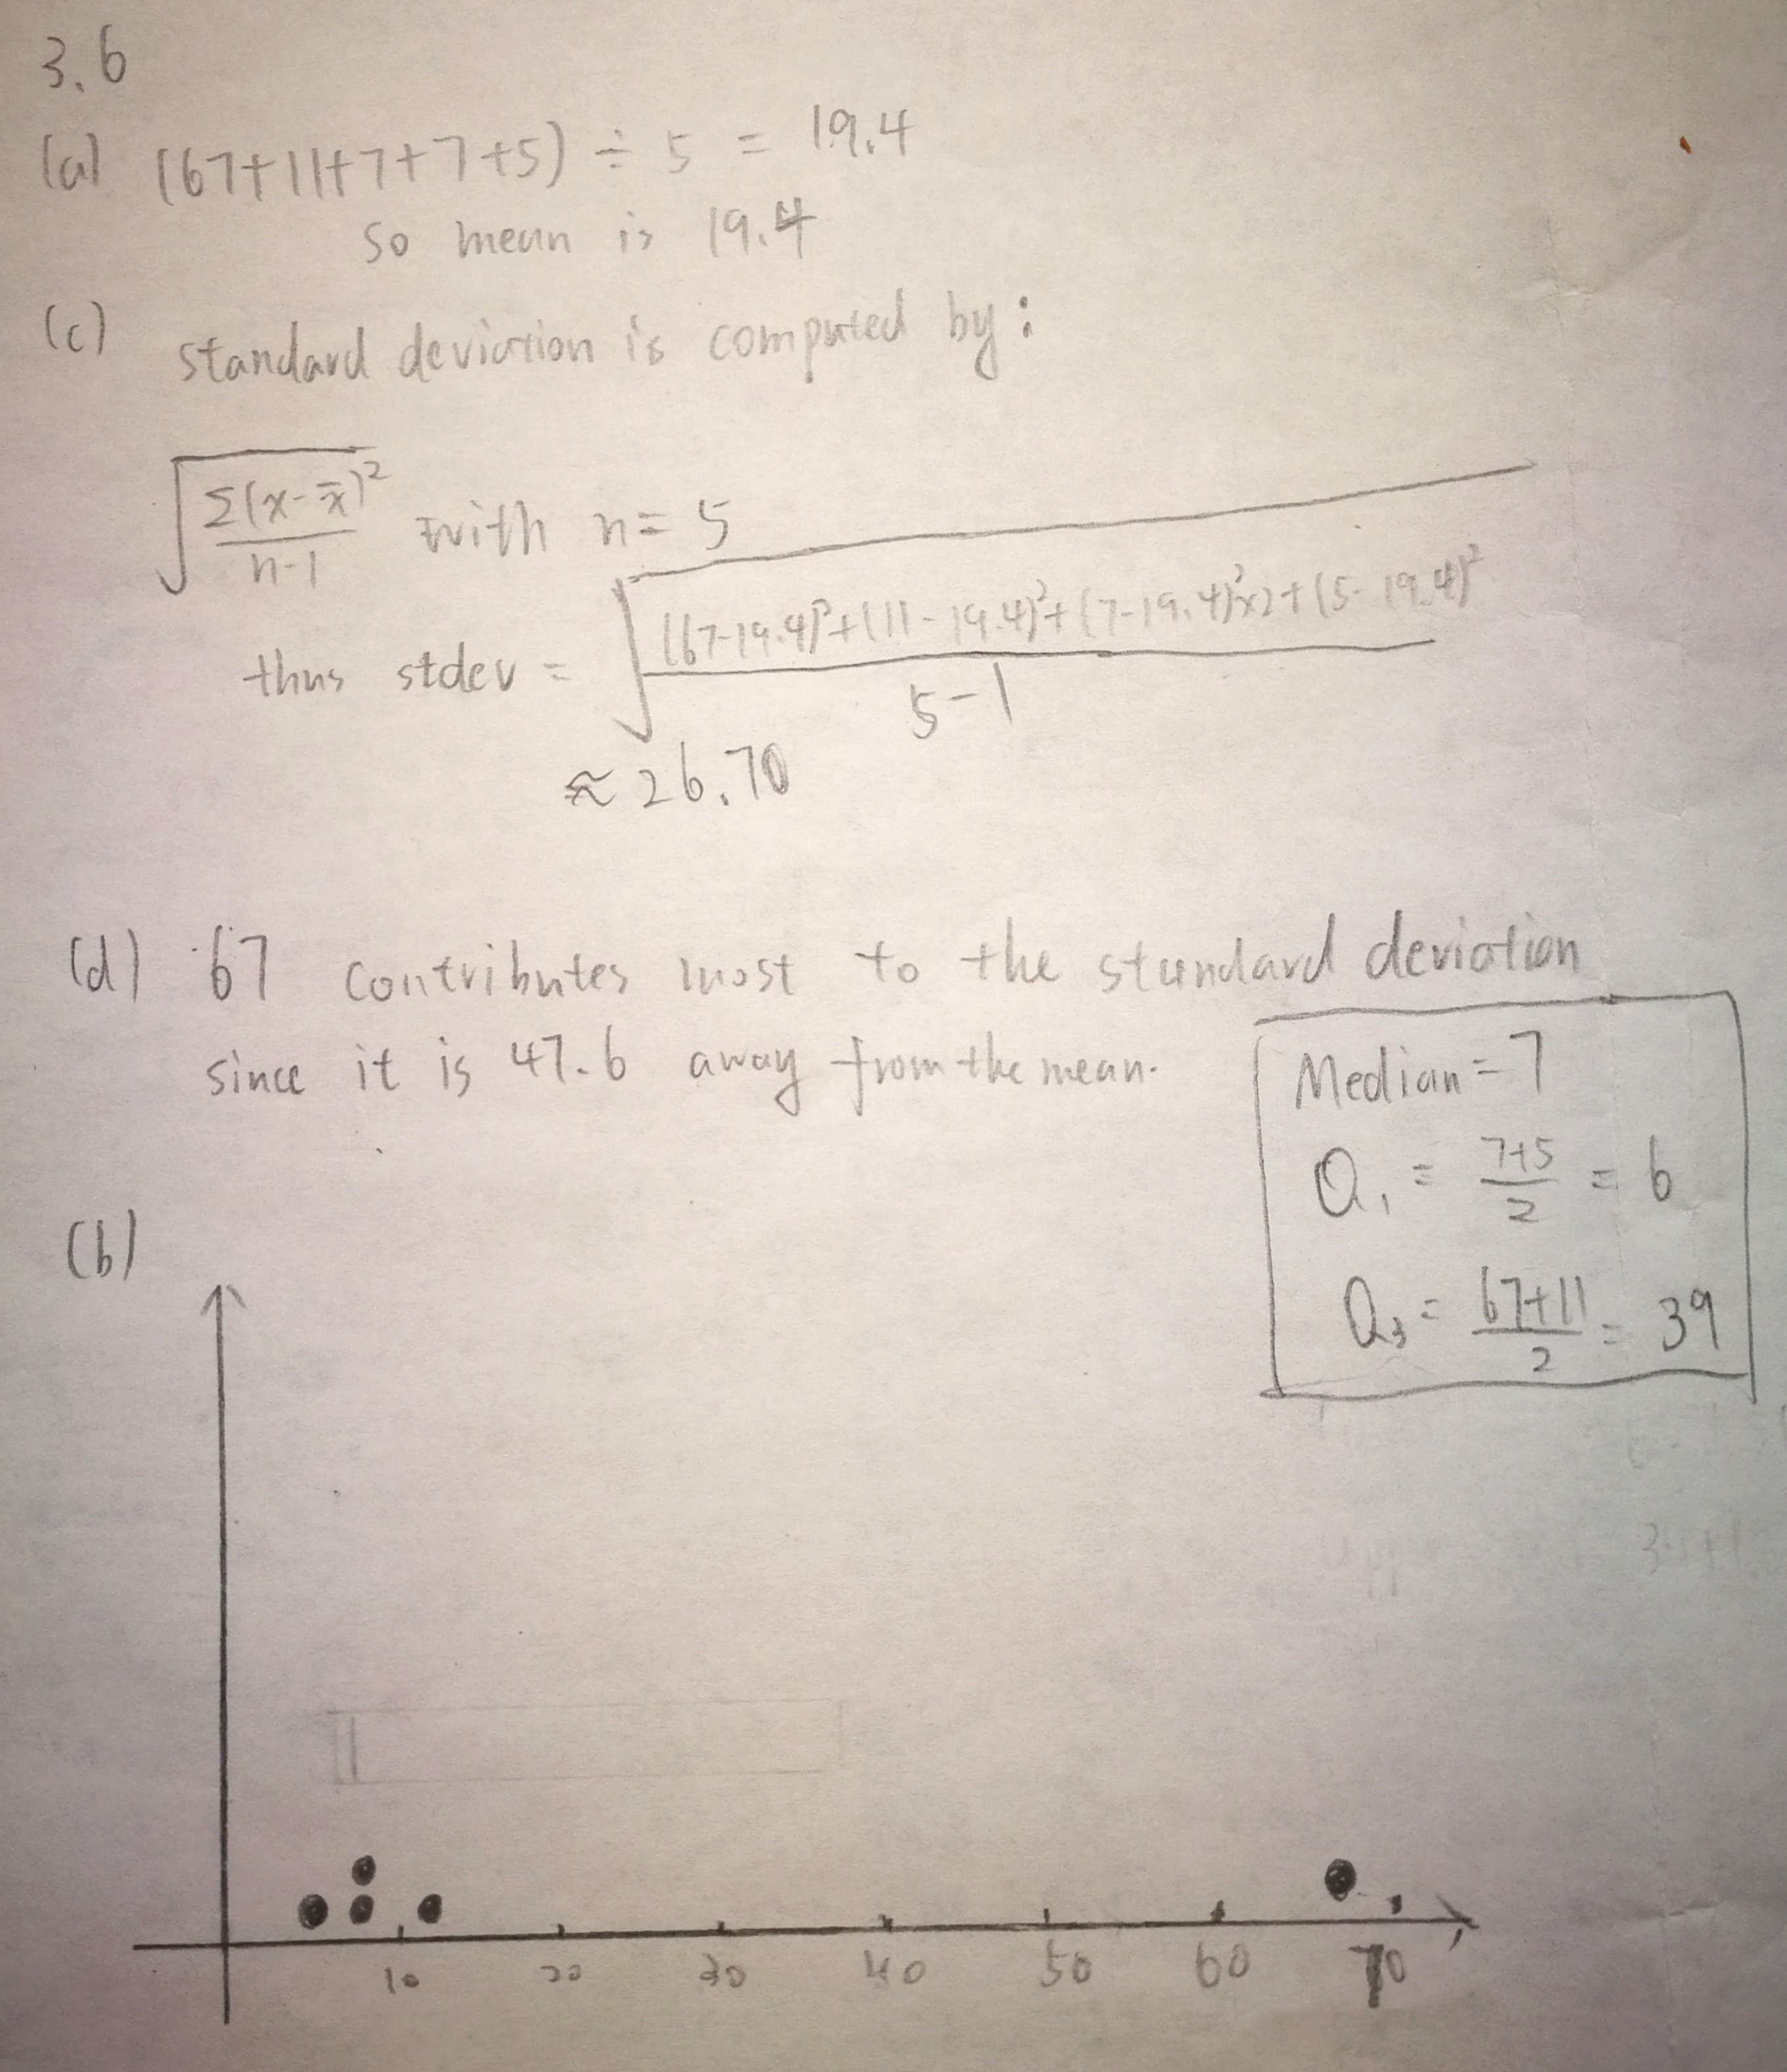 3.6
(a) (67+11+7+7+5) ÷ 5 = 19.4
So mean is 19.4
(c) standard deviation is computed by:
√(Σ(x-x̄)²/(n-1)) with n=5
thus stdev = √(((67-19.4)²+(11-19.4)²+(7-19.4)²x2+(5-19.4)²)/(5-1))
≈ 26.70
(d) 67 contributes most to the standard deviation
since it is 47.6 away from the mean.
Median = 7
Q₁ = (7+5)/2 = 6
Q₃ = (67+11)/2 = 39
(b)
10 20 30 40 50 60 70